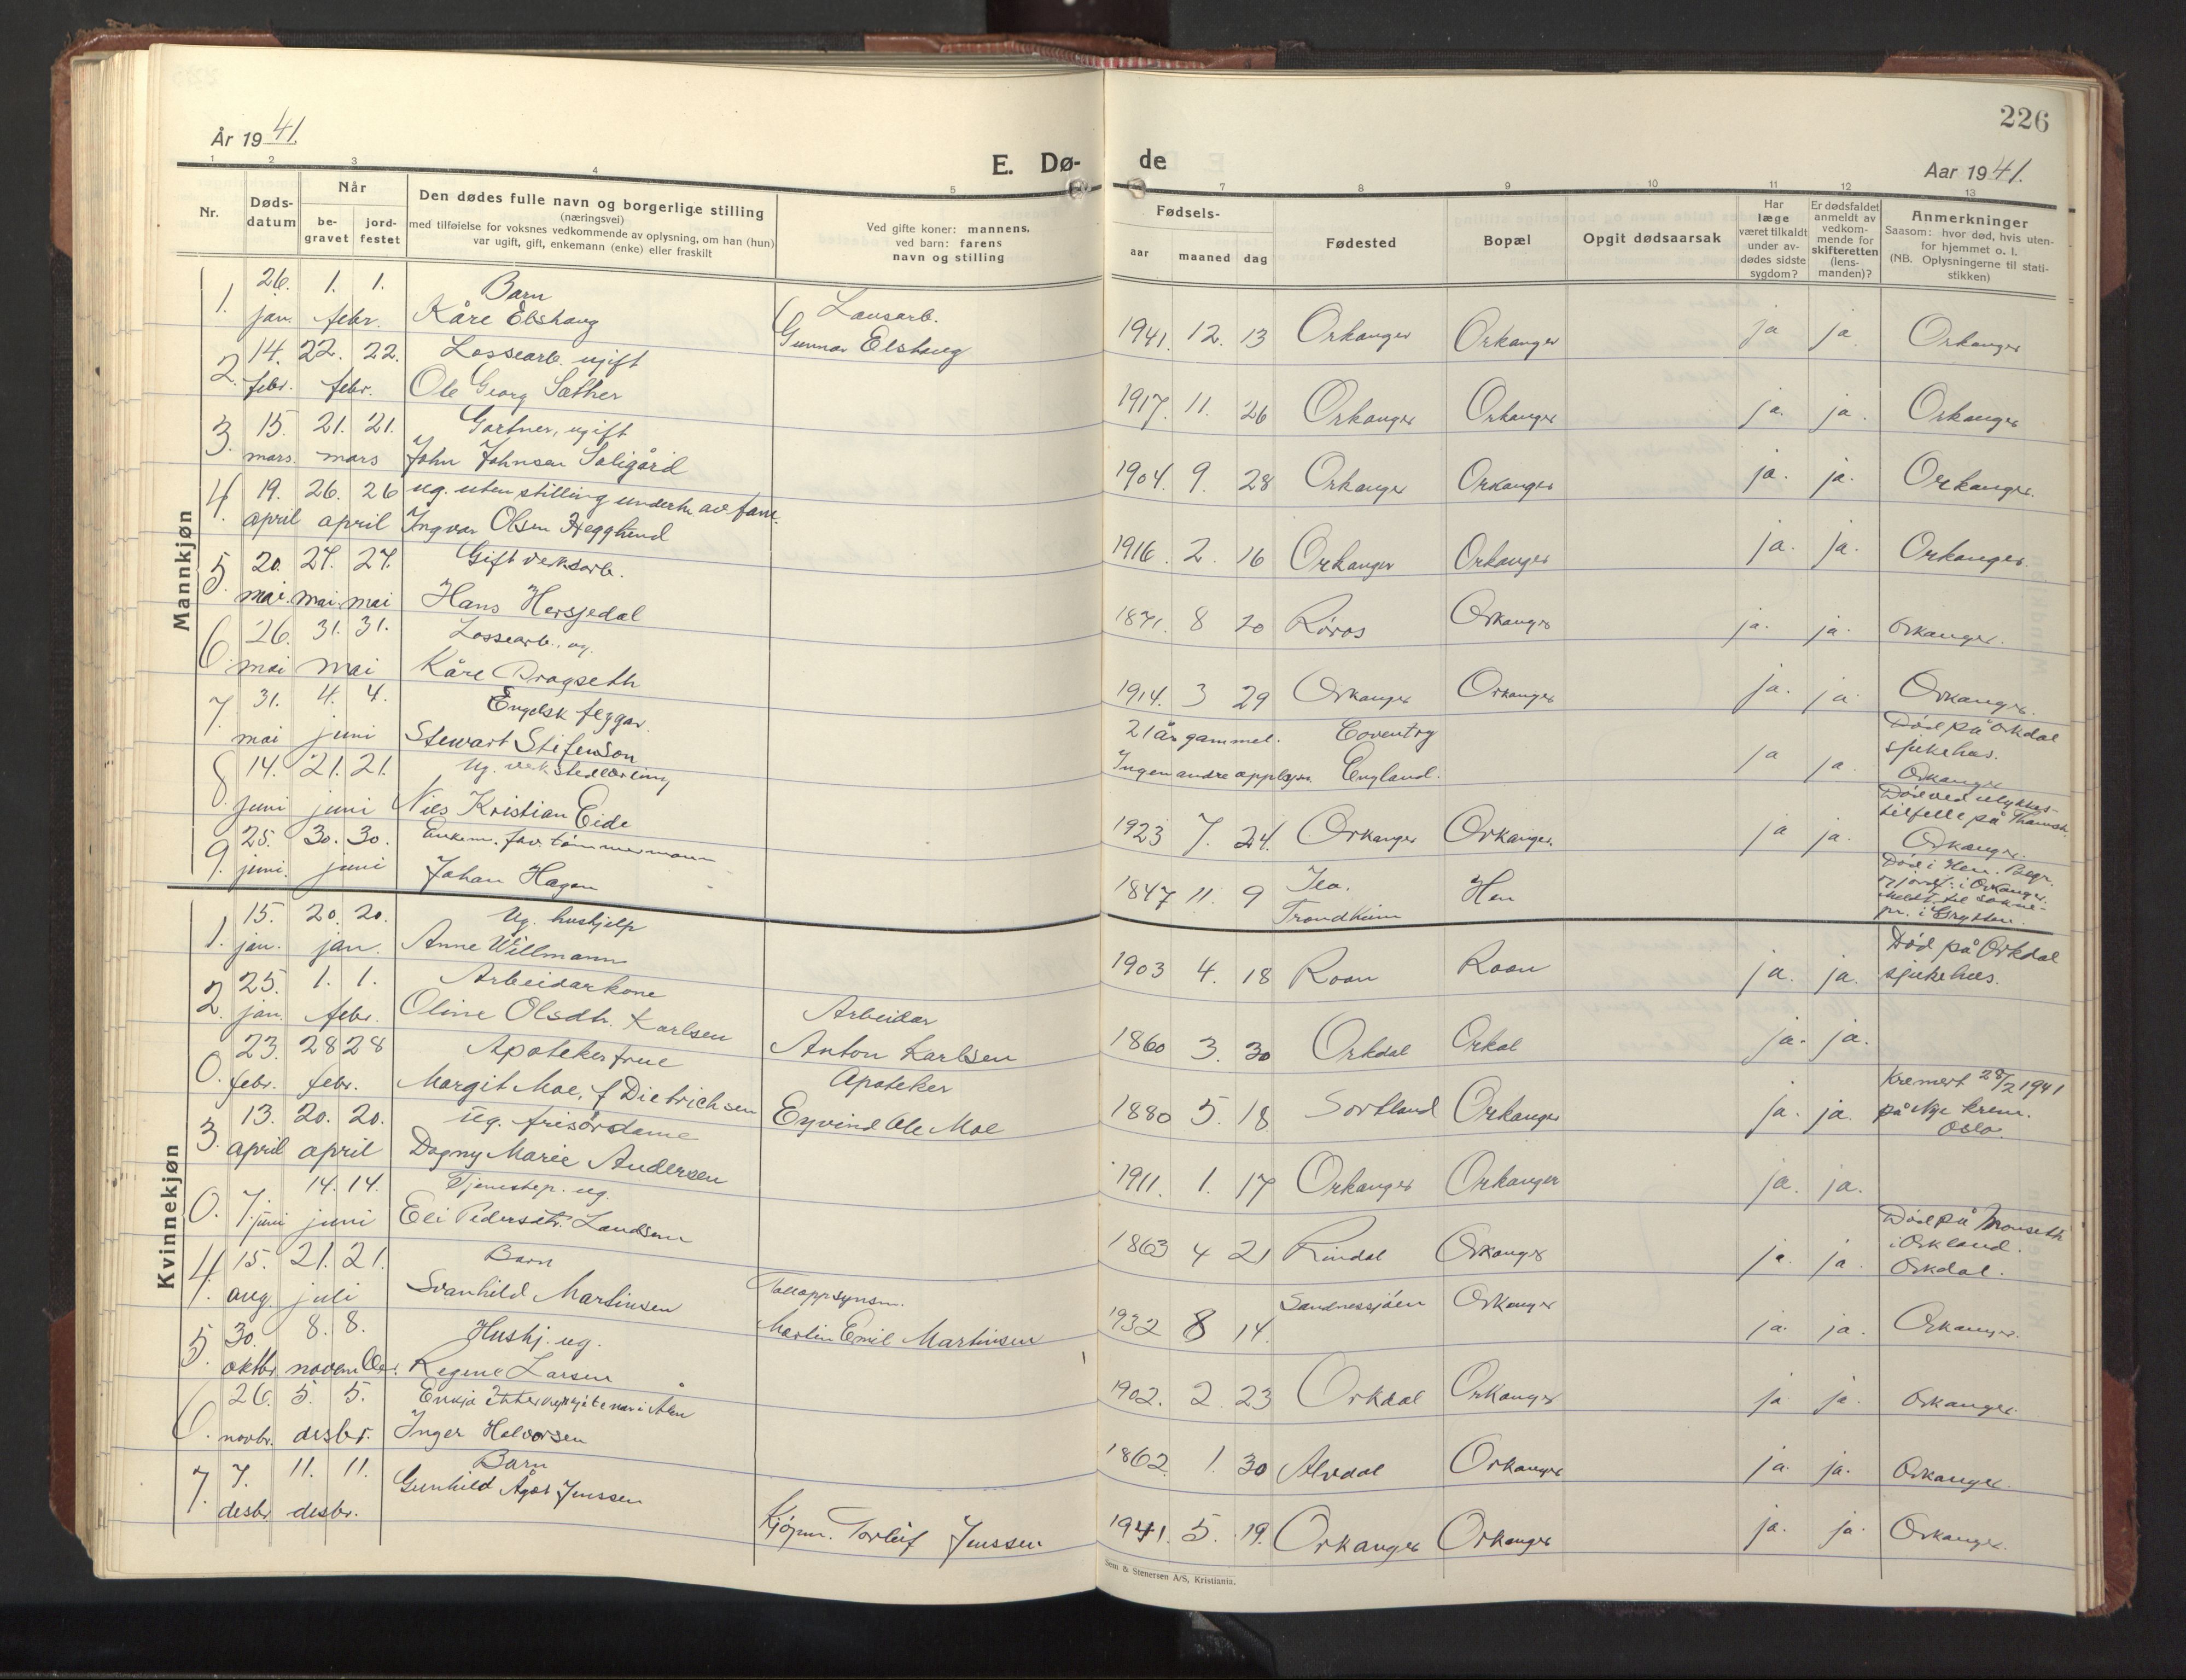 226
År 1941.
E. Dø-
de
Aar 1941.
1 2 3 4 5 7 8 9 10 11 12 13
Nr.
Døds-
datum
Når
be-
gravet
jord-
festet
Den dødes fulle navn og borgerlige stilling
(næringsvei)
med tilføielse for voksnes vedkommende av oplysning, om han (hun)
var ugift, gift, enkemann (enke) eller fraskilt
Ved gifte koner: mannens,
ved barn: farens
navn og stilling
Fødsels-
aar maaned dag
Fødested
Bopæl
Opgit dødsaarsak
Har
læge
været tilkaldt
under av-
dødes sidste
sygdom?
Er dødsfaldet
anmeldt av
vedkom-
mende for
skifteretten
(lens-
manden)?
Anmerkninger
Saasom: hvor død, hvis uten-
for hjemmet o. l.
(NB. Oplysningerne til stati-
stikken)
Mannkjøn
26. 1. 1. Barn Lausarb.
1. jan. febr. Kåre Elshaug Gunnar Elshaug 1941. 12. 13 Orkanger Orkanger ja ja. Orkanger
14. 22. 22. Lossearb. ugift
2. febr. febr. Ole Georg Sæther 1917. 11. 26 Orkanger Orkanger ja. ja. Orkanger
15. 21. 21. Gartner, ugift
3. mars. mars John Johnsen Soligård 1904. 9. 28 Orkanger Orkanger ja. ja. Orkanger.
19. 26. 26 ug. uten stilling underh. av fam.
4. april april Ingvar Olsen Hegghend 1916. 2. 16 Orkanger Orkanger ja. ja. Orkanger.
20. 27. 27. Gift verksarb.
5. mai. mai. mai Hans Hersjedal 1871. 8 20 Røros Orkanger ja. ja. Orkanger.
26. 31. 31. Lossearb., ug.
6. mai mai Kåre Dragseth 1914. 3 29 Orkanger Orkanger ja. ja Orkanger.
31. 4. 4. Engelsk flygar. 21 år gammel. Coventry Død på Orkdal
7. mai juni Stewart Stifenson Ingen andre opplysn. England. ja ja. sjukehus. Orkanger
14. 21. 21. Ug. verkstedlærling Død ved ulykkes-
8. juni juni Nils Kristian Eide 1923 7. 24. Orkanger Orkanger. ja ja. tilfelle på Thamsh. Orkanger.
25. 30. 30. Enkem. fhv. tømmermann Død i Hen. Begr.
9. juni. juni Johan Hagen 1847 11. 9 Ila. Trondheim Hen og jordf. i Orkanger.
Meldt til sokne-
pr. i Grytten.
Kvinnekjøn
15. 20. 20. Ug. hushjelp Død på Orkdal
1. jan. jan. Anne Willmann 1903 4. 18 Roan Roan ja. ja. sjukehus.
25. 1. 1. Arbeidarkone Arbeidar
2. jan. febr. Oline Olsdtr. Karlsen Anton Karlsen 1860 3. 30 Orkdal Orkal ja. ja.
23. 28 28 Apotekerfrue Apoteker Kremert 28/2 1941
0. febr. febr. Margit Moe, f Dietrichsen Eyvind Ole Moe 1880 5. 18 Sortland Orkanger ja. ja. på Nye krem. Oslo.
13. 20. 20. ug. frisørdame
3. april april Dagny Marie Andersen 1911. 1. 17 Orkanger Orkanger ja. ja.
14. 14. Tjenestep. ug. Død på Monseth
0. 7. juni juni Eli Pedersdtr. Landsem 1863 4 21 Rindal Orkanger ja. ja. i Orkland. Orkdal.
15. 21. 21. Barn Tolloppsynsm.
4. aug. juli Svanhild Martinsen Martin Emil Martinsen 1932 8 14. Sandnessjöen Orkanger ja. ja. Orkanger.
30. 8. 8. Hushj. ug.
5. oktbr. november. Regine Larsen 1902. 2 23 Orkdal Orkanger ja ja. Orkanger.
26. 5. 5. Enkja
6. novbr. desbr. Inger Halvorsen 1862. 1. 30 Alvdal Orkanger ja. ja. Orkanger.
7. 11. 11. Barn
7. desbr desbr. Gunhild Jenssen Kjöpm. Torleif Jenssen 1941. 5. 19. Orkanger Orkanger ja. ja. Orkanger.
Sem & Stenersen A/S, Kristiania.